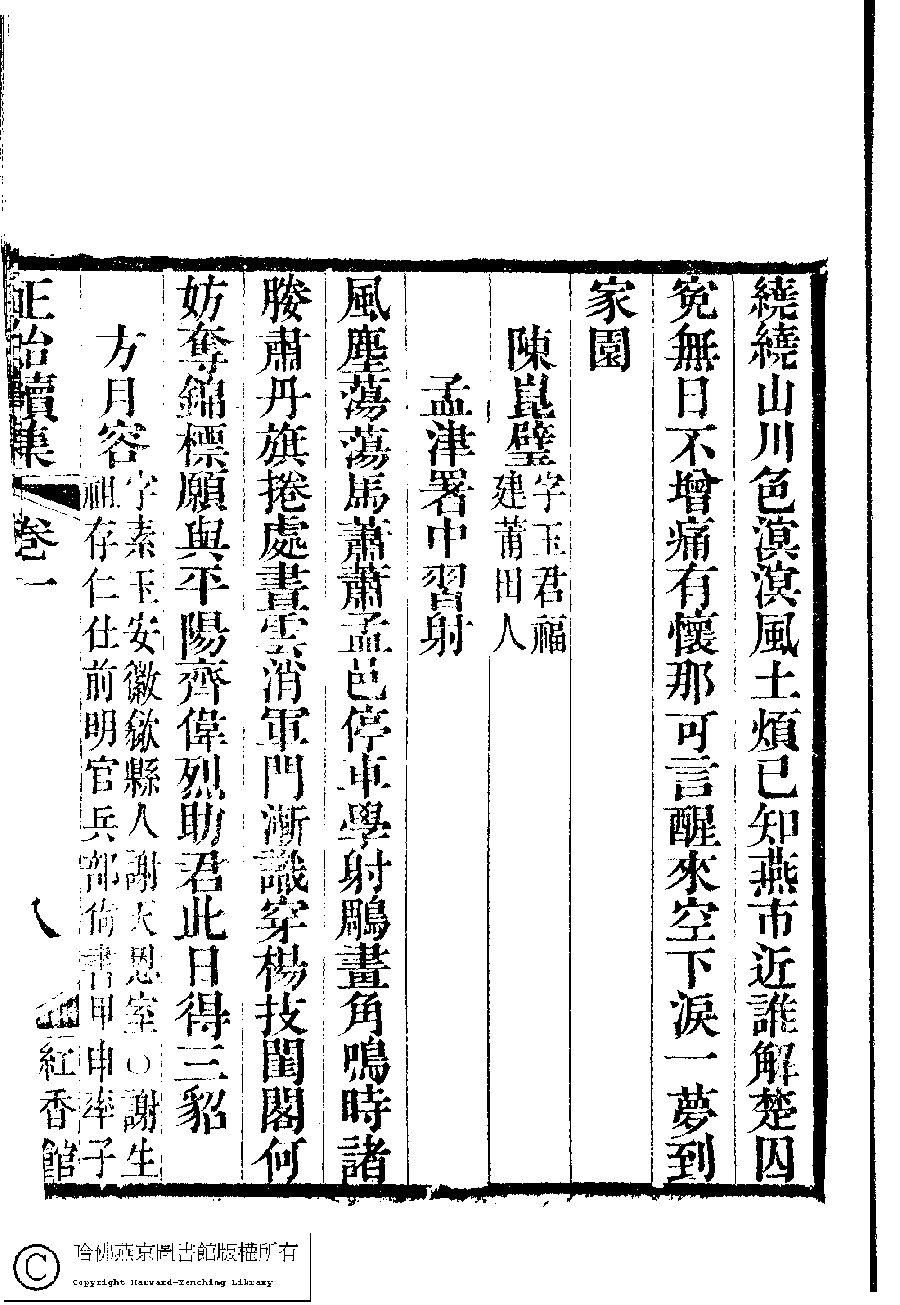 繞繞山川色溟溟風土煩已知燕市近誰解楚囚
寃無日不增痛有懷那可言醒來空下淚一夢到
家園
陳崑璧字玉君福
建莆田人
孟津署中習射
風塵蕩蕩馬蕭蕭孟邑停車學射鵰畫角鳴時諸
媵肅丹旗捲處晝雲消軍門漸識穿楊技閨閣何
妨奪錦標願與平陽齊偉烈助君此日得三貂
方月容字素玉安徽歙縣人謝天恩室○謝生
祖存仁仕前明官兵部尚書甲申率子
正始續集 卷一 八 紅香館
哈佛燕京圖書館版權所有
Copyright Harvard-Yenching Library